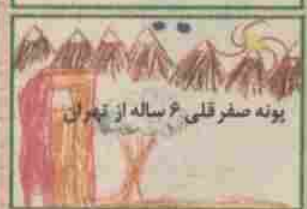 پونه صفرقلی ۶ ساله از تهران